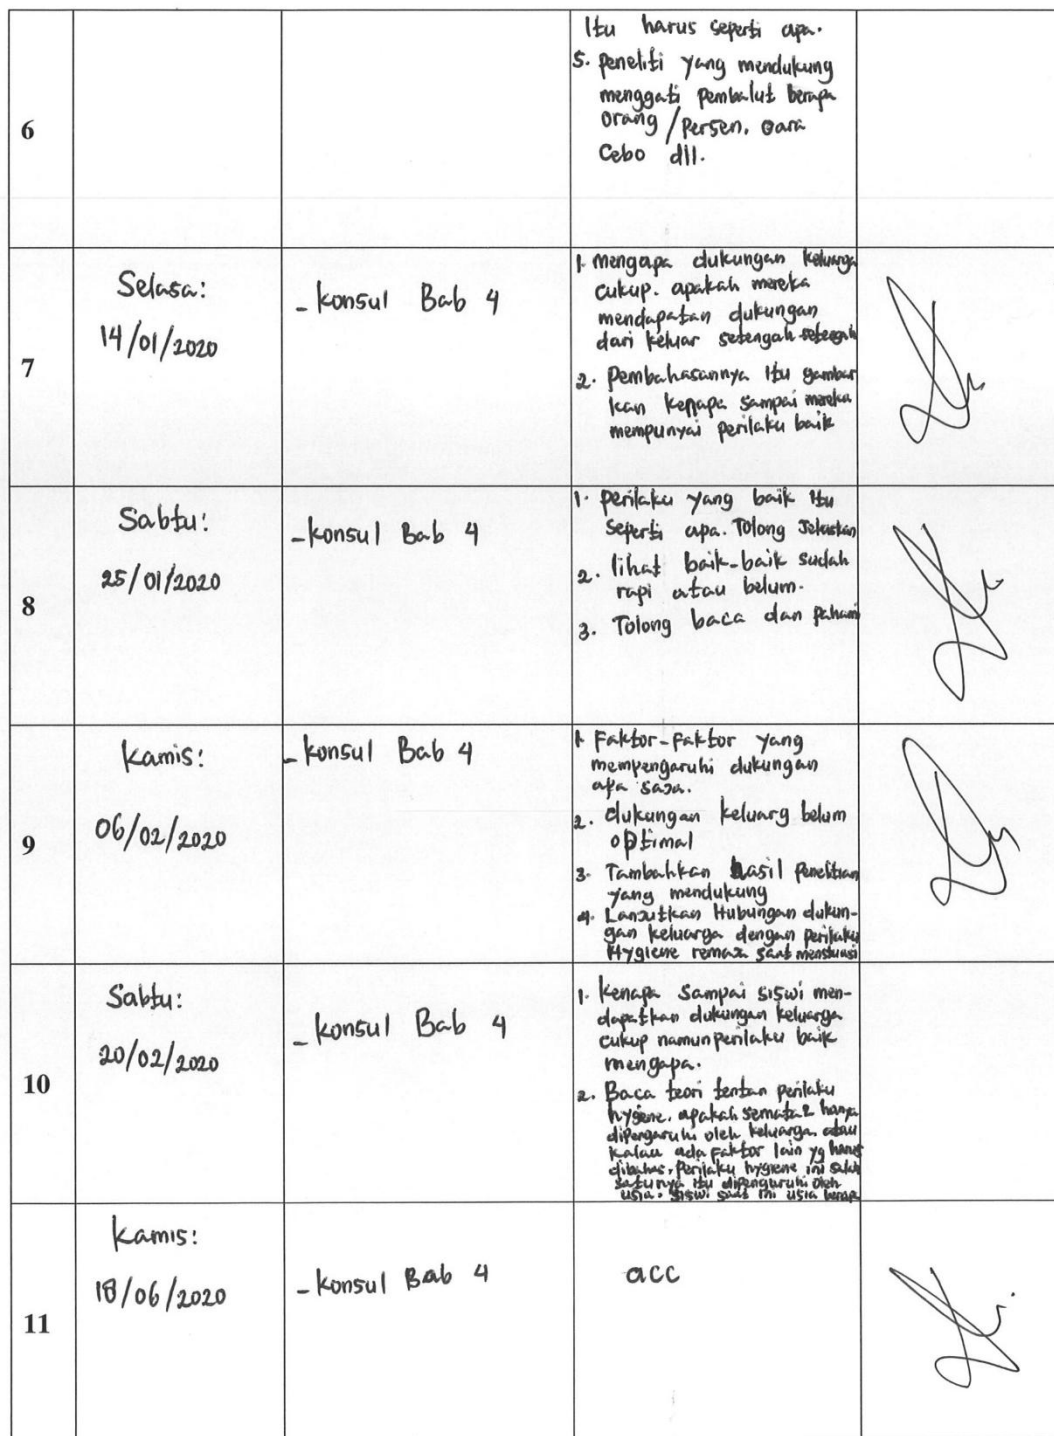 6
Itu harus seperti apa.
5. peneliti yang mendukung
menggati pembalut berapa
orang / Persen. cara
Cebo dll.
7
Selasa:
14/01/2020
- konsul Bab 4
1. mengapa dukungan keluarga
cukup. apakah mereka
mendapatan dukungan
dari keluar setengah-setengah
2. Pembahasannya Itu gambar
kan kenapa sampai mereka
mempunyai perilaku baik
8
Sabtu:
25/01/2020
- konsul Bab 4
1. perilaku yang baik Itu
seperti apa. Tolong Jelaskan
2. lihat baik-baik sudah
rapi atau belum.
3. Tolong baca dan pahami
9
Kamis:
06/02/2020
- konsul Bab 4
1. Faktor-Faktor yang
mempengaruhi dukungan
apa saja.
2. dukungan keluarg belum
optimal
3. Tambahkan hasil Penelitian
yang mendukung
4. Lanjutkan Hubungan dukun-
gan keluarga dengan perilaku
Hygiene remaja saat menstruasi
10
Sabtu:
20/02/2020
- konsul Bab 4
1. kenapa sampai siswi men-
dapatkan dukungan keluarga
cukup namun perilaku baik
mengapa.
2. Baca teori tentan perilaku
hygiene. apakah semata2 hanya
dipengaruhi oleh keluarga atau
kalau ada faktor lain yg harus
dibahas, Perilaku hygiene ini salah
satunya itu dipenguruhi oleh
usia. siswi saat ini usia berapa
11
Kamis:
18/06/2020
- konsul Bab 4
acc